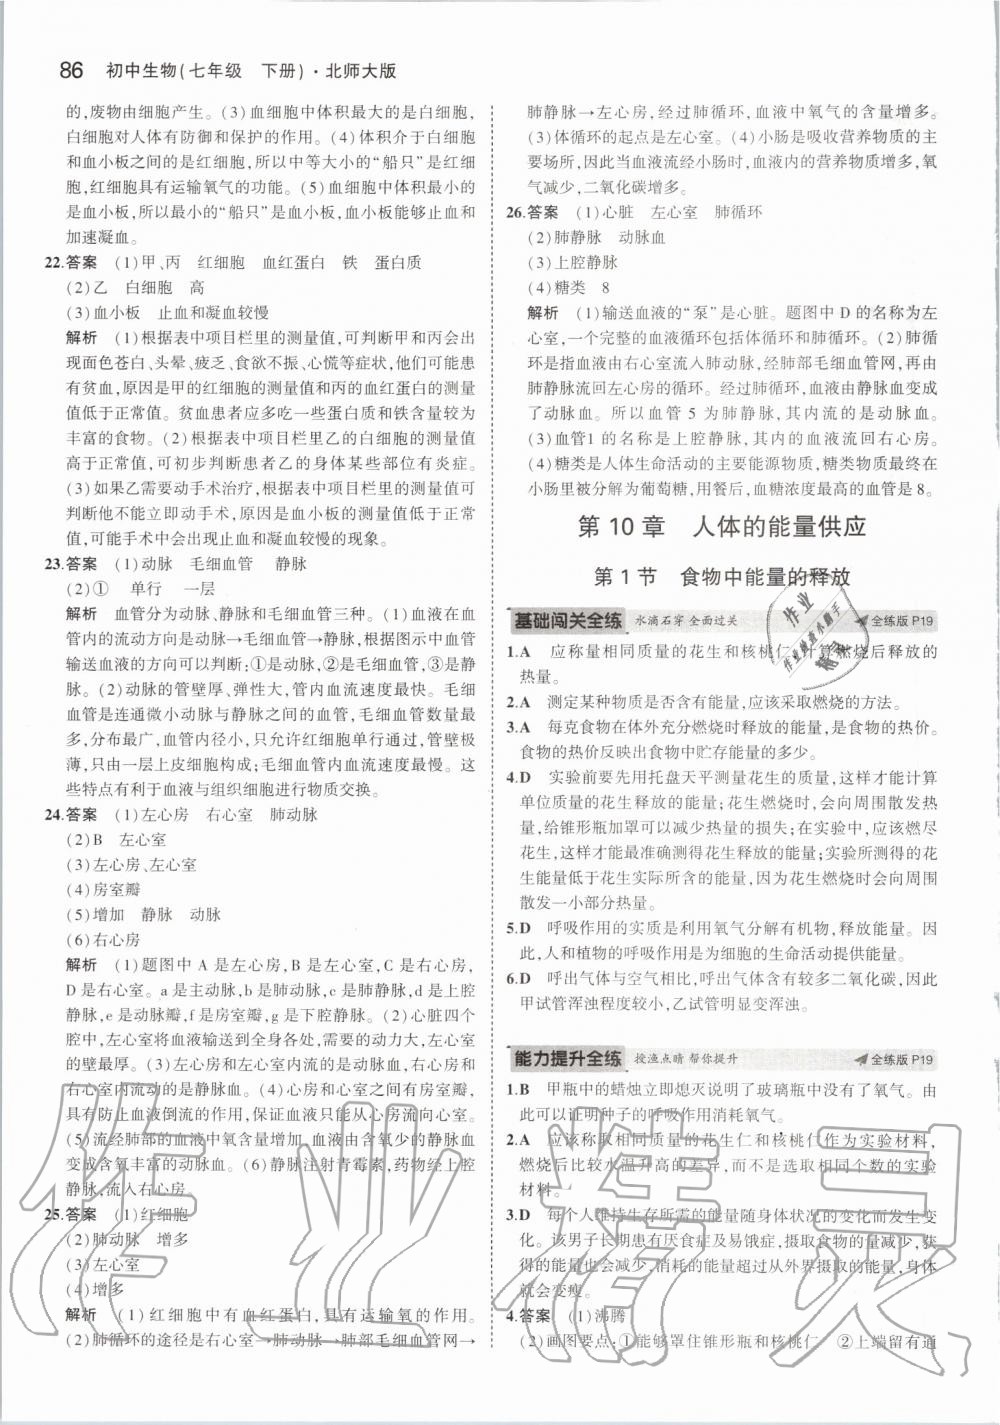 86 初中生物(七年级 下册)·北师大版
的,废物由细胞产生。(3)血细胞中体积最大的是白细胞,
白细胞对人体有防御和保护的作用。(4)体积介于白细胞
和血小板之间的是红细胞,所以中等大小的“船只”是红细
胞,红细胞具有运输氧气的功能。(5)血细胞中体积最小的
是血小板,所以最小的“船只”是血小板,血小板能够止血和
加速凝血。
22.答案 (1)甲、丙 红细胞 血红蛋白 铁 蛋白质
(2)乙 白细胞 高
(3)血小板 止血和凝血较慢
解析 (1)根据表中项目栏里的测量值,可判断甲和丙会出
现面色苍白、头晕、疲乏、食欲不振、心慌等症状,他们可能患
有贫血,原因是甲的红细胞的测量值和丙的血红蛋白的测量
值低于正常值。贫血患者应多吃一些蛋白质和铁含量较为
丰富的食物。(2)根据表中项目栏里乙的白细胞的测量值
高于正常值,可初步判断患者乙的身体某些部位有炎症。
(3)如果乙需要动手术治疗,根据表中项目栏里的测量值可
判断他不能立即动手术,原因是血小板的测量值低于正常
值,可能手术中会出现止血和凝血较慢的现象。
23.答案 (1)动脉 毛细血管 静脉
(2)① 单行 一层
解析 血管分为动脉、静脉和毛细血管三种。(1)血液在血
管内的流动方向是动脉→毛细血管→静脉,根据图示中血管
输送血液的方向可以判断:①是动脉、②是毛细血管、③是静
脉。(2)动脉的管壁厚、弹性大,管内血流速度最快。毛细
血管是连通微小动脉与静脉之间的血管,毛细血管数量最
多,分布最广,血管内径小,只允许红细胞单行通过,管壁极
薄,只由一层上皮细胞构成;毛细血管内血流速度最慢。这
些特点有利于血液与组织细胞进行物质交换。
24.答案 (1)左心房 右心室 肺动脉
(2)B 左心室
(3)左心房、左心室
(4)房室瓣
(5)增加 静脉 动脉
(6)右心房
解析 (1)题图中 A 是左心房,B 是左心室,C 是右心房,
D 是右心室。a 是主动脉,b 是肺静脉,c 是肺动脉,d 是上腔
静脉,e 是动脉瓣,f 是房室瓣,g 是下腔静脉。(2)心脏四个
腔中,左心室将血液输送到全身各处,需要的动力大,左心室
的壁最厚。(3)左心房和左心室内流的是动脉血,右心房和
右心室内流动的是静脉血。(4)心房和心室之间有房室瓣,
具有防止血液倒流的作用,保证血液只能从心房流向心室。
(5)流经肺部的血液中氧含量增加,血液由含氧少的静脉血
变成含氧丰富的动脉血。(6)静脉注射青霉素,药物经上腔
静脉,流入右心房。
25.答案 (1)红细胞
(2)肺动脉 增多
(3)左心室
(4)增多
解析 (1)红细胞中有血红蛋白,具有运输氧的作用。
(2)肺循环的途径是右心室→肺动脉→肺部毛细血管网→
肺静脉→左心房,经过肺循环,血液中氧气的含量增多。
(3)体循环的起点是左心室。(4)小肠是吸收营养物质的主
要场所,因此当血液流经小肠时,血液内的营养物质增多,氧
气减少,二氧化碳增多。
26.答案 (1)心脏 左心室 肺循环
(2)肺静脉 动脉血
(3)上腔静脉
(4)糖类 8
解析 (1)输送血液的“泵”是心脏。题图中 D 的名称为左
心室,一个完整的血液循环包括体循环和肺循环。(2)肺循
环是指血液由右心室流入肺动脉,经肺部毛细血管网,再由
肺静脉流回左心房的循环。经过肺循环,血液由静脉血变成
了动脉血。所以血管 5 为肺静脉,其内流的是动脉血。
(3)血管1 的名称是上腔静脉,其内的血液流回右心房。
(4)糖类是人体生命活动的主要能源物质,糖类物质最终在
小肠里被分解为葡萄糖,用餐后,血糖浓度最高的血管是 8。
第 10 章 人体的能量供应
第 1 节 食物中能量的释放
基础闯关全练 水滴石穿 全面过关 全练版 P19
1.A 应称量相同质量的花生和核桃仁,计算燃烧后释放的
热量。
2.A 测定某种物质是否含有能量,应该采取燃烧的方法。
3.A 每克食物在体外充分燃烧时释放的能量,是食物的热价。
食物的热价反映出食物中贮存能量的多少。
4.D 实验前要先用托盘天平测量花生的质量,这样才能计算
单位质量的花生释放的能量;花生燃烧时,会向周围散发热
量,给锥形瓶加罩可以减少热量的损失;在实验中,应该燃尽
花生,这样才能最准确测得花生释放的能量;实验所测得的花
生能量低于花生实际所含的能量,因为花生燃烧时会向周围
散发一小部分热量。
5.D 呼吸作用的实质是利用氧气分解有机物,释放能量。因
此,人和植物的呼吸作用是为细胞的生命活动提供能量。
6.D 呼出气体与空气相比,呼出气体含有较多二氧化碳,因此
甲试管浑浊程度较小,乙试管明显变浑浊。
能力提升全练 授渔点睛 帮你提升 全练版 P19
1.B 甲瓶中的蜡烛立即熄灭说明了玻璃瓶中没有了氧气。由
此可以证明种子的呼吸作用消耗氧气。
2.A 应该称取相同质量的花生仁和核桃仁作为实验材料,
燃烧后比较水温升高的差异,而不是选取相同个数的实验
材料。
3.D 每个人维持生存所需的能量随身体状况的变化而发生变
化。该男子长期患有厌食症及易饿症,摄取食物的量减少,获
得的能量也会减少,消耗的能量超过从外界摄取的能量,身体
就会变瘦。
4.答案 (1)沸腾
(2)画图要点:①能够罩住锥形瓶和核桃仁 ②上端留有通
作业精灵